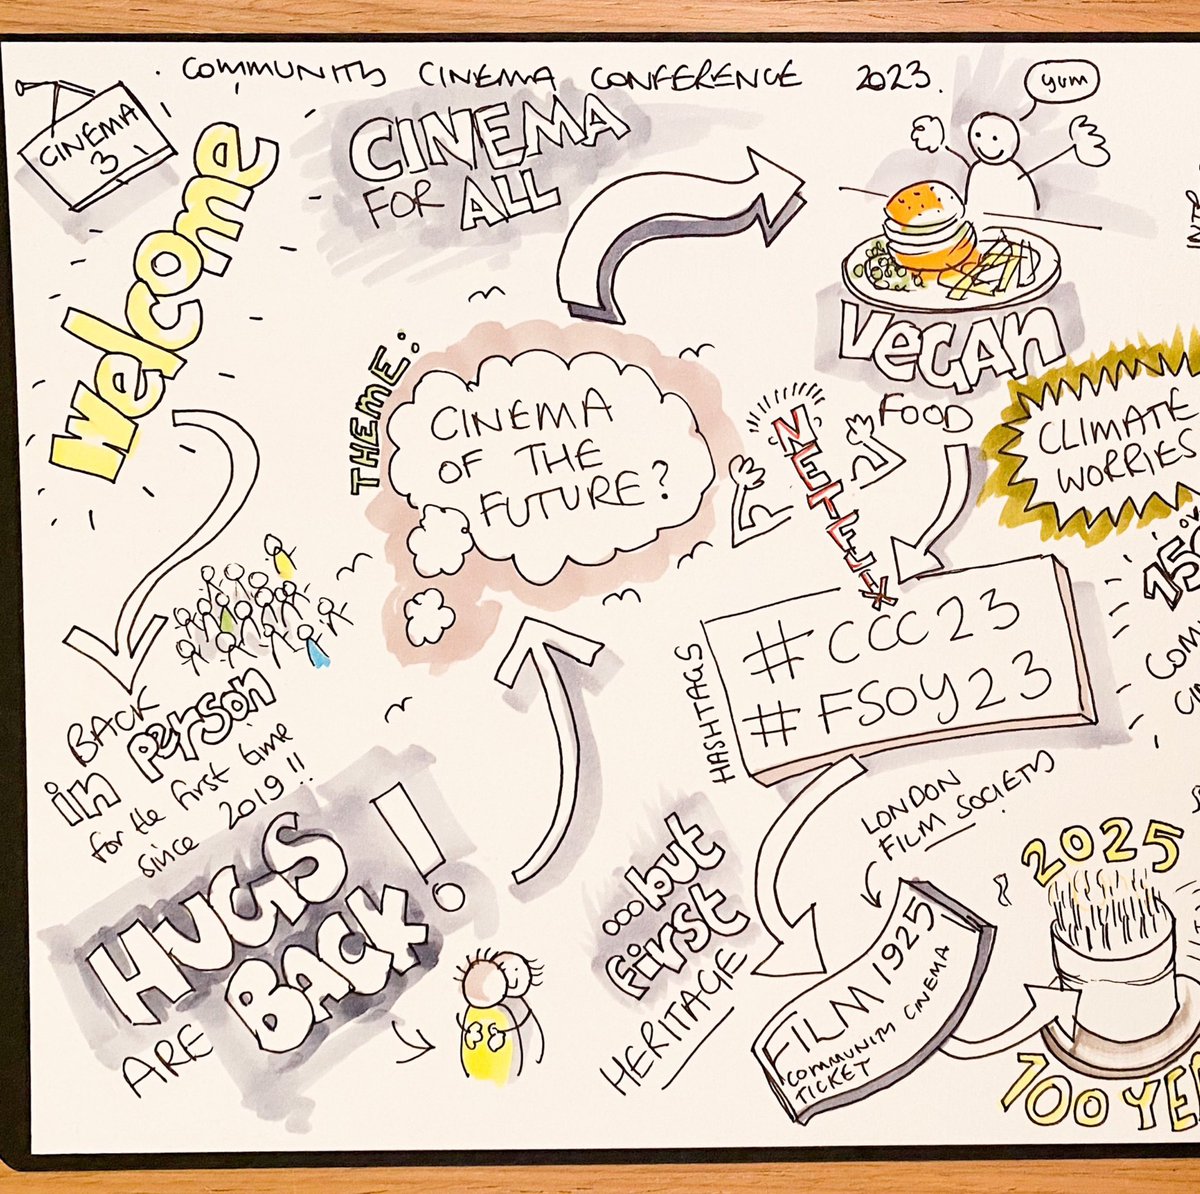 COMMUNITY CINEMA CONFERENCE 2023.
CINEMA
3
Welcome
CINEMA
FOR ALL
yum
VEGAN
FOOD
THEME:
CINEMA
OF THE
FUTURE?
NETFLIX
CLIMATE
WORRIES
BACK
in person
for the first time
since 2019!!
HUGS
ARE BACK!
HASHTAGS
#CCC23
#FSOY23
...but
first
HERITAGE
LONDON
FILM SOCIETY
FILM 1925
COMMUNITY CINEMA
TICKET
2025
100 YE